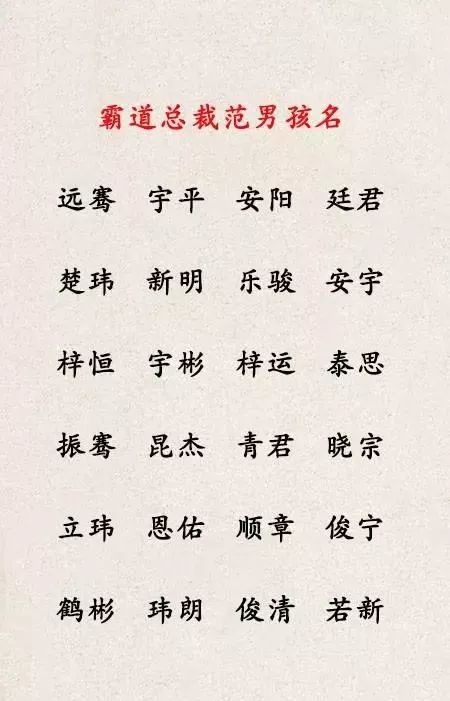 霸道总裁范男孩名
远骞 宇平 安阳 廷君
楚玮 新明 乐骏 安宇
梓恒 宇彬 梓运 泰思
振骞 昆杰 青君 晓宗
立玮 恩佑 顺章 俊宁
鹤彬 玮朗 俊清 若新